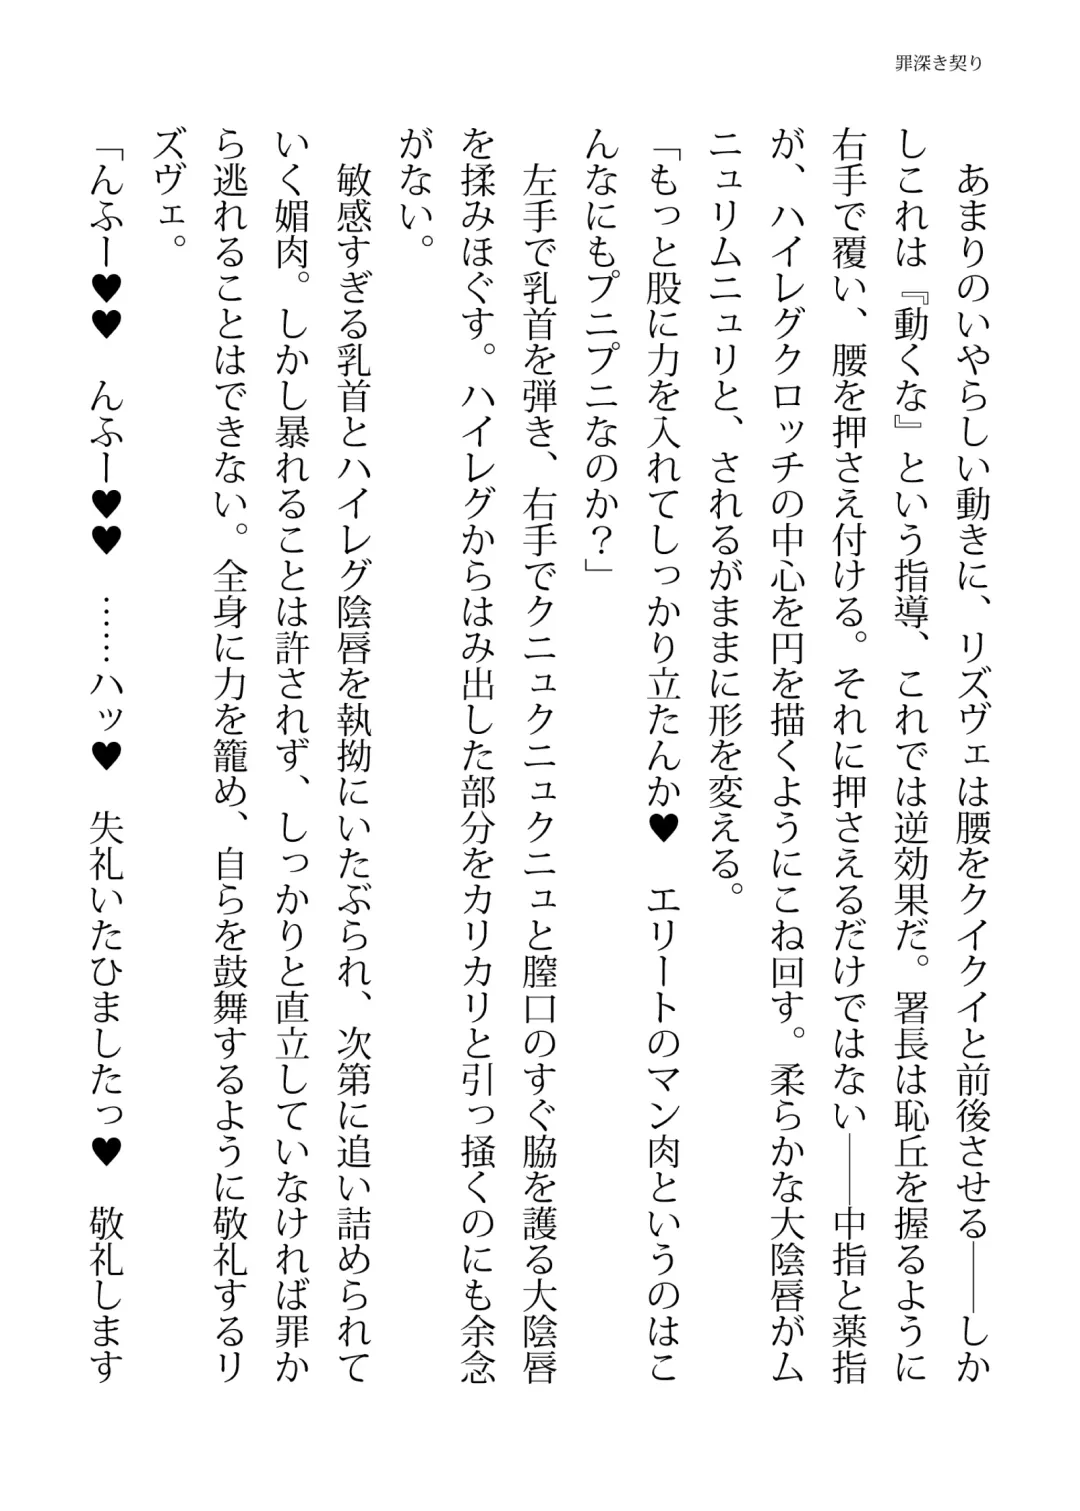 罪深き契り
　あまりのいやらしい動きに、リズヴェは腰をクイクイと前後させる――しか
しこれは『動くな』という指導、これでは逆効果だ。署長は恥丘を握るように
右手で覆い、腰を押さえ付ける。それに押さえるだけではない――中指と薬指
が、ハイレグクロッチの中心を円を描くようにこね回す。柔らかな大陰唇がム
ニュリムニュリと、されるがままに形を変える。
「もっと股に力を入れてしっかり立たんか♥　エリートのマン肉というのはこ
んなにもプニプニなのか？」
　左手で乳首を弾き、右手でクニュクニュクニュと膣口のすぐ脇を護る大陰唇
を揉みほぐす。ハイレグからはみ出した部分をカリカリと引っ掻くのにも余念
がない。
　敏感すぎる乳首とハイレグ陰唇を執拗にいたぶられ、次第に追い詰められて
いく媚肉。しかし暴れることは許されず、しっかりと直立していなければ罪か
ら逃れることはできない。全身に力を籠め、自らを鼓舞するように敬礼するリ
ズヴェ。
「んふー♥♥　んふー♥♥　……ハッ♥　失礼いたひましたっ♥　敬礼します